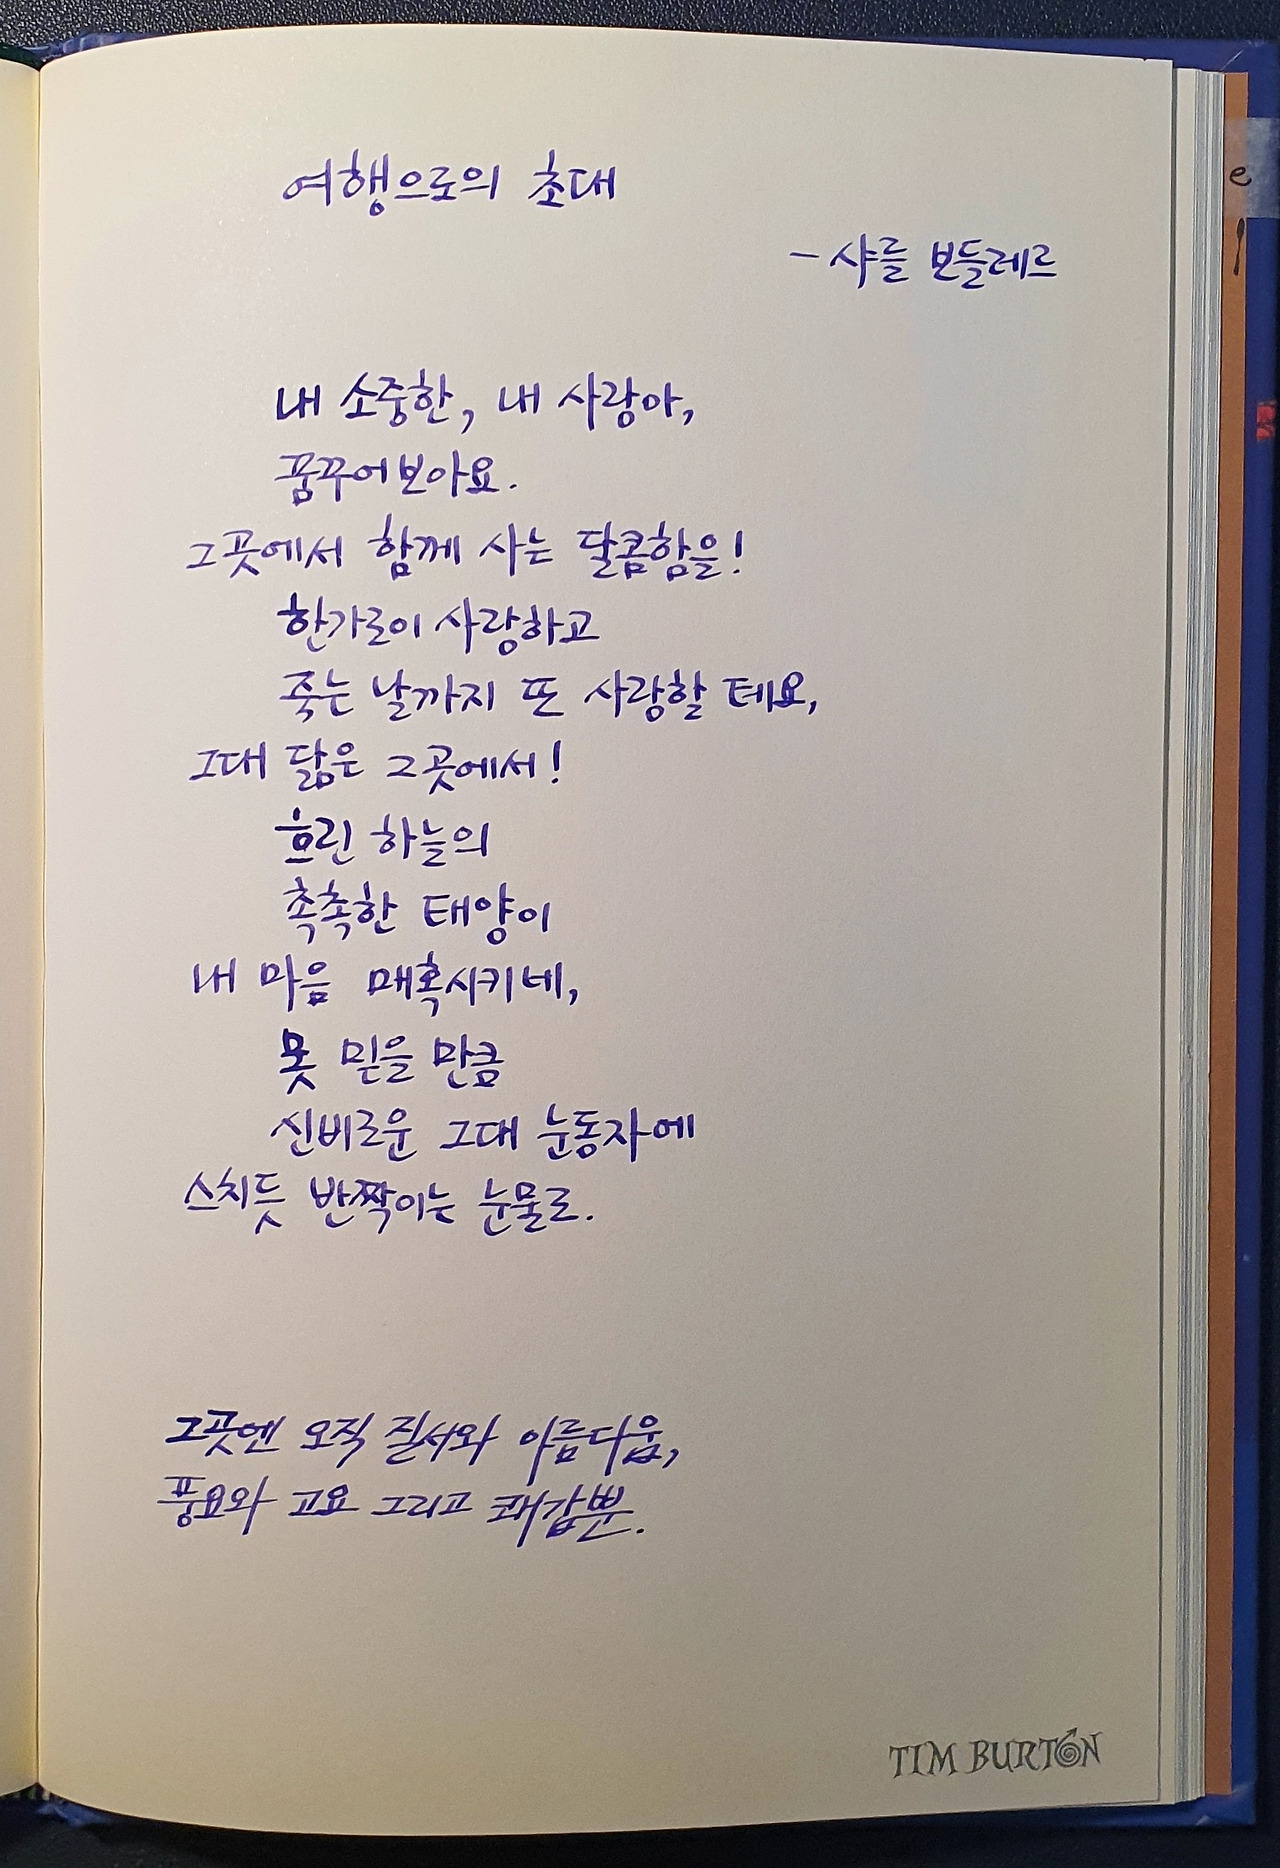 여행으로의 초대
- 샤를 보들레르
내 소중한, 내 사랑아,
꿈꾸어보아요.
그곳에서 함께 사는 달콤함을!
한가로이 사랑하고
죽는 날까지 또 사랑할 테요,
그대 닮은 그곳에서!
흐린 하늘의
촉촉한 태양이
내 마음 매혹시키네,
못 믿을 만큼
신비로운 그대 눈동자에
스치듯 반짝이는 눈물로.
그곳엔 오직 질서와 아름다움,
풍요와 고요 그리고 쾌감뿐.
TIM BURTON
e